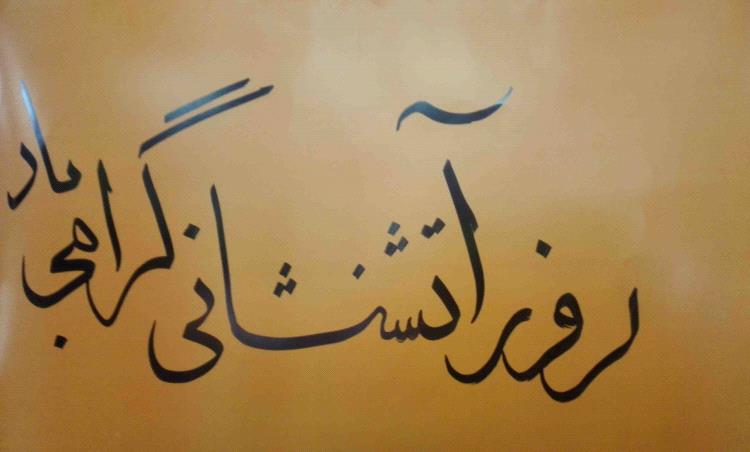 روز آتشنشانی گرامی باد